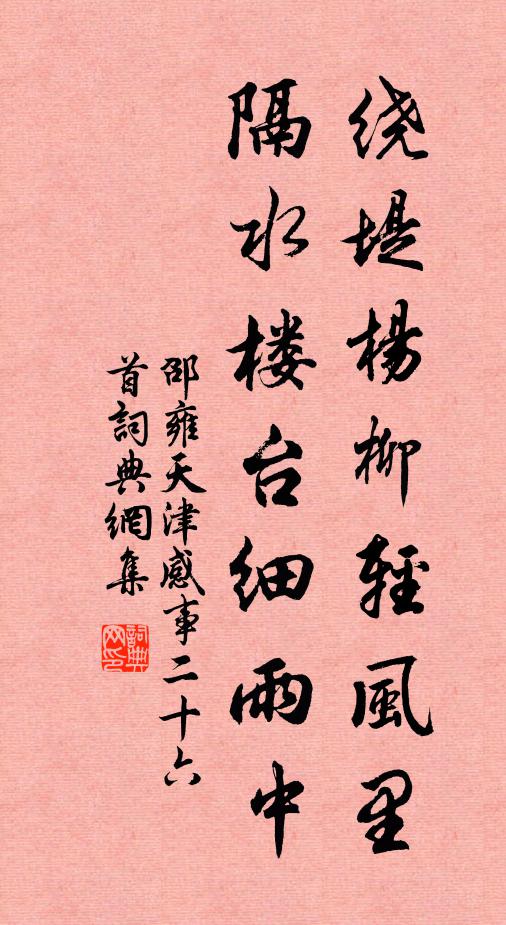 绕堤杨柳輕風里
隔水楼台细雨中
邵雍天津感事二十六
首詞典網集
詞典
网印